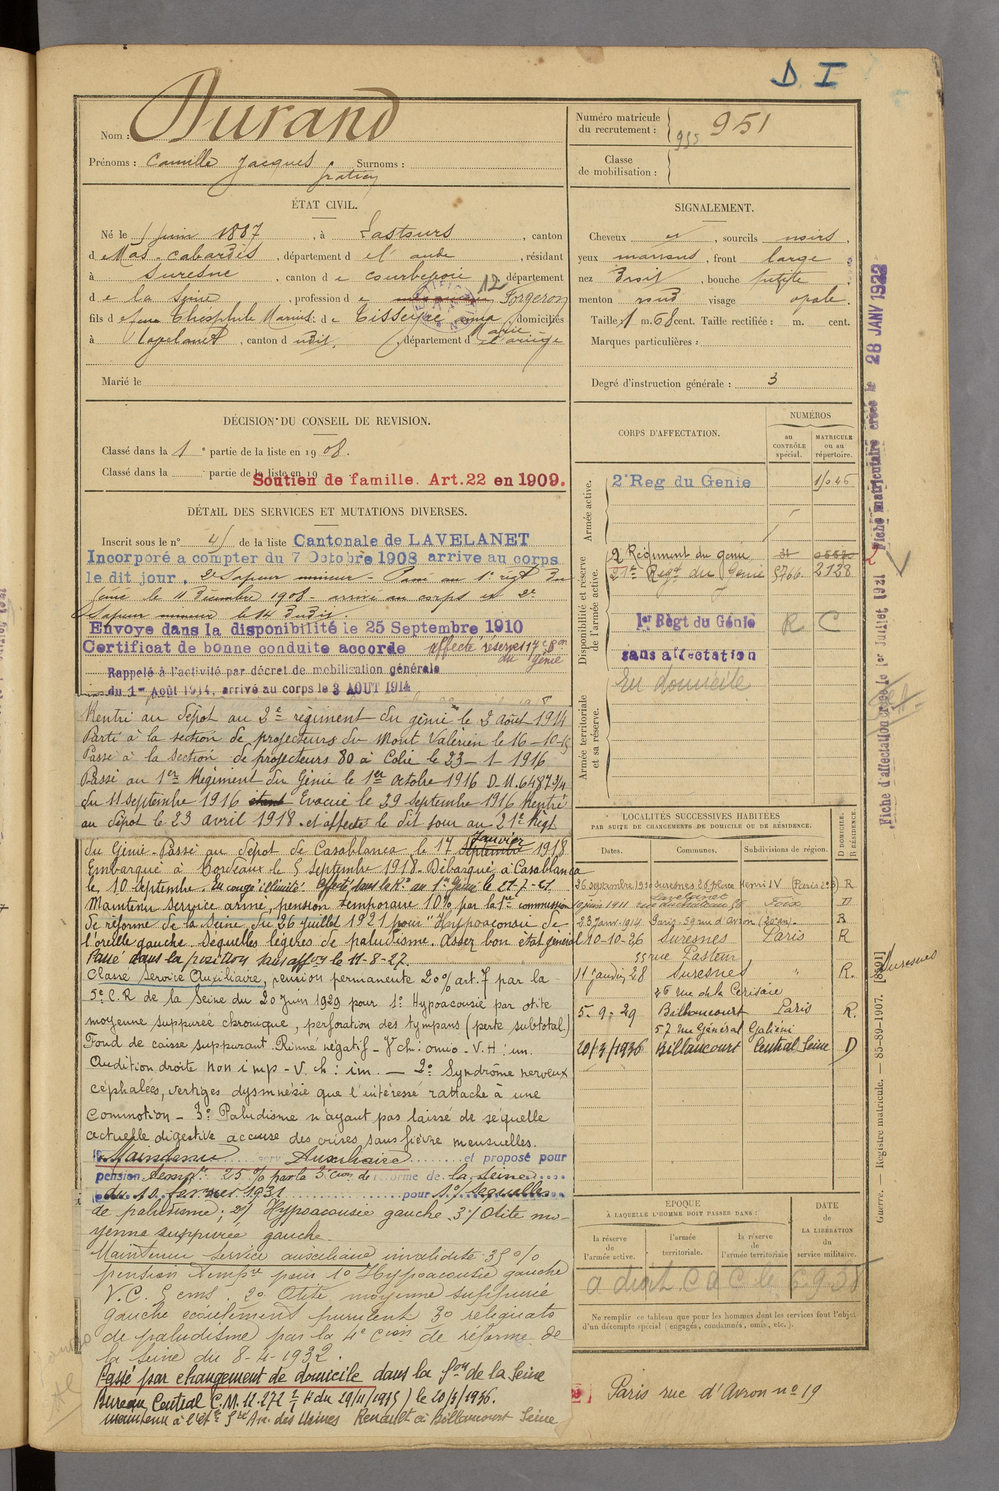 D. I
Nom : Durand
Prénoms : Camille Jacques Surnoms :
Gratien
Numéro matricule
du recrutement : 951
Classe
de mobilisation :
ÉTAT CIVIL.
Né le 5 juin 1887, à Lastours, canton
d Mas-Cabardès, département d el'aude, résidant
à Suresne, canton d e Courbevoie, département
d e la Seine, profession d e Forgeron
fils d efeu Théophile Marius et d e Tisseyre domiciliés
Marie
à Lavelanet, canton d udit, département d el'ariège
Marié le
SIGNALEMENT.
Cheveux et, sourcils noirs,
yeux marrons, front large
nez Droit, bouche petite
menton rond visage ovale.
Taille 1 m. 68 cent. Taille rectifiée : m. cent.
Marques particulières :
Degré d'instruction générale : 3
DÉCISION DU CONSEIL DE REVISION.
Classé dans la 1e partie de la liste en 1908.
Classé dans la partie de la liste en 19
Soutien de famille. Art. 22 en 1909.
DÉTAIL DES SERVICES ET MUTATIONS DIVERSES.
Inscrit sous le n° 45 de la liste Cantonale de LAVELANET
Incorporé a compter du 7 Octobre 1908 arrive au corps
le dit jour, 2e Sapeur mineur - Passé au 1er régt du
Génie le 11 Décembre 1908 - arrivé au corps et 2e
Sapeur mineur le 14 dudit.
Envoye dans la disponibilité le 25 Septembre 1910
Certificat de bonne conduite accorde affecté réserves 17e Bon
du Génie
Rappelé à l'activité par décret de mobilisation générale
du 1er Août 1914, arrivé au corps le 3 AOUT 1914
Rentré au dépôt au 2e régiment du génie le 3 août 1914
Parti à la section de projecteurs du Mont Valérien le 16-10-15
Passé à la section de projecteurs 80 à Colié le 23-1-1916
Passé au 1er Régiment du Génie le 1er octobre 1916 D.M. 6487 3/4
du 11 septembre 1916 étant Evacué le 29 septembre 1916 Rentré
au dépôt le 23 avril 1918 et affecté le dit jour au 21e Régt
du Génie - Passé au dépôt de Casablanca le 17 septembre 1918
Janvier
Embarqué à Bordeaux le 5 septembre 1918. Débarqué à Casablanca
le 10 septembre. En congé illimité. Affecté dans la Rve au 1er Génie le 21-7-21
Maintenu service armé, pension temporaire 10% par la 1re commission
de réforme de la Seine du 26 juillet 1921 pour "Hypoacousie de
l'oreille gauche. Séquelles légères de paludisme. Assez bon état général
Passé dans la position sans affon le 11-8-27.
Classé Service Auxiliaire, pension permanente 20% art. 7 par la
5e C.R de la Seine du 20 juin 1929 pour 1° Hypoacousie par otite
moyenne suppurée chronique, perforation des tympans (perte subtotal)
Fond de caisse suppurant. Rinne négatif - V ch : om10 - V.H : 1m.
Audition droite non imp - V. ch : 1m. - 2° Syndrôme nerveux
céphalées, vertiges dysmnésie que l'intéressé rattache à une
Commotion - 3° Paludisme n'ayant pas laissé de séquelle
actuelle digestive accuse des crises sans fièvre mensuelles.
Maintenu serv Auxiliaire et proposé pour
pension temp re 25 % par la 3e Com de réforme de la seine
du 10 fevrier 1931 pour 1°/ séquelles
de paludisme; 2°/ Hypoacousie gauche 3°/ Otite mo-
yenne suppurée gauche.
Maintenu Service auxiliaire invalidité 35%
pension tempre pour 1° Hypoacousie gauche
V.C. 5 cms. 2° Otite moyenne suppurée
gauche écoulement purulent 3° reliquats
de paludisme par la 4e Con de réforme de
la Seine du 8-4-1932.
Passé par changement de domicile dans la Son de la Seine
Bureau Central C.M. 12.272 du 29/11/1935) le 20/3/1936.
maintenu à l'Et des Usines Renault à Billancourt Seine
CORPS D'AFFECTATION.
NUMÉROS
au CONTRÔLE spécial.
MATRICULE ou au répertoire.
Armée active.
2e Reg du Genie
Disponibilité et réserve de l'armée active.
2 Régiment du genie 31
21e Regt du Génie 5766. 2128
1er Règt du Génie R C
sans affectation
Armée territoriale et sa réserve.
Su domicile
LOCALITÉS SUCCESSIVES HABITÉES
PAR SUITE DE CHANGEMENTS DE DOMICILE OU DE RÉSIDENCE.
Dates. Communes. Subdivisions de région. D DOMICILE. R RÉSIDENCE
26 septembre 1910 Suresnes 26 place Henri IV (Paris 2e B) R
Lavelanet Foix D
23 Janv. 1914 Paris - 59 rue d'Avron (Seine) R
10-10-26 Suresnes Paris R
55 rue Pasteur
11 janvier 28 Suresnes " R.
26 rue de la Cerisaie
5-9-29 Billancourt Paris R.
57 rue Général Galiéni
20/3/1936 Billancourt Central Seine D
Suresnes
EPOQUE
À LAQUELLE L'HOMME DOIT PASSER DANS :
la réserve de l'armée active.
l'armée territoriale.
la réserve de l'armée territoriale
DATE de LA LIBÉRATION du service militaire.
a droit C a C le
Ne remplir ce tableau que pour les hommes dont les services font l'objet
d'un décompte spécial (engagés, condamnés, omis, etc.).
Paris rue d'Avron no 19
Fiche matriculaire créée le 28 JANV 1922
Fiche d'affectation créée le 1er Juillet 1921
Guerre. — Registre matricule. — 85-89-1907. [8801]